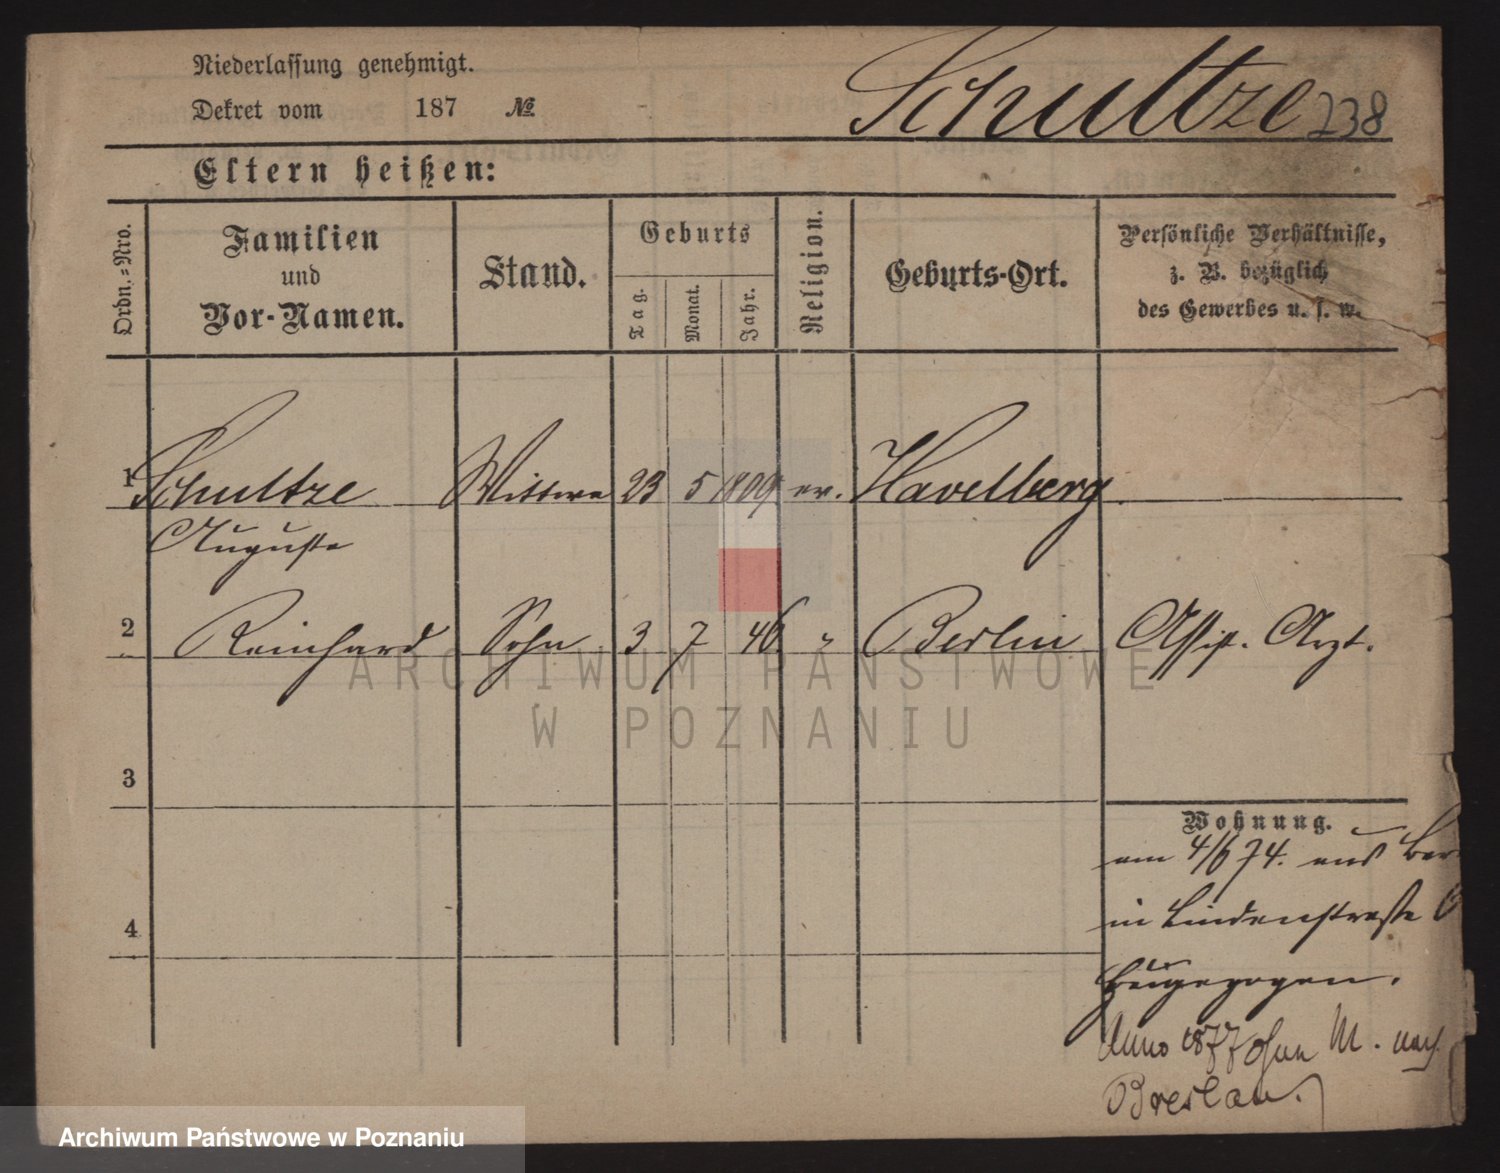 Niederlassung genehmigt.
Dekret vom 187 №
Schultze 238
Eltern heißen:
Ordn.=Nro.
Familien
und
Vor-Namen.
Stand.
Geburts
Tag.
Monat.
Jahr.
Religion.
Geburts-Ort.
Persönliche Verhältnisse,
z. B. bezüglich
des Gewerbes u. s. w.
1 Schultze Wittwe 23 5 1809 ev. Havelberg
Auguste
2 Reinhard Sohn 3 7 46 " Berlin Assist. Arzt.
ARCHIWUM PAŃSTWOWE
W POZNANIU
3
Wohnung.
am 4/6 74. aus Ber
in Lindenstraße
4
zugezogen.
Anno 1877 ohne M. nach
Breslau.
Archiwum Państwowe w Poznaniu